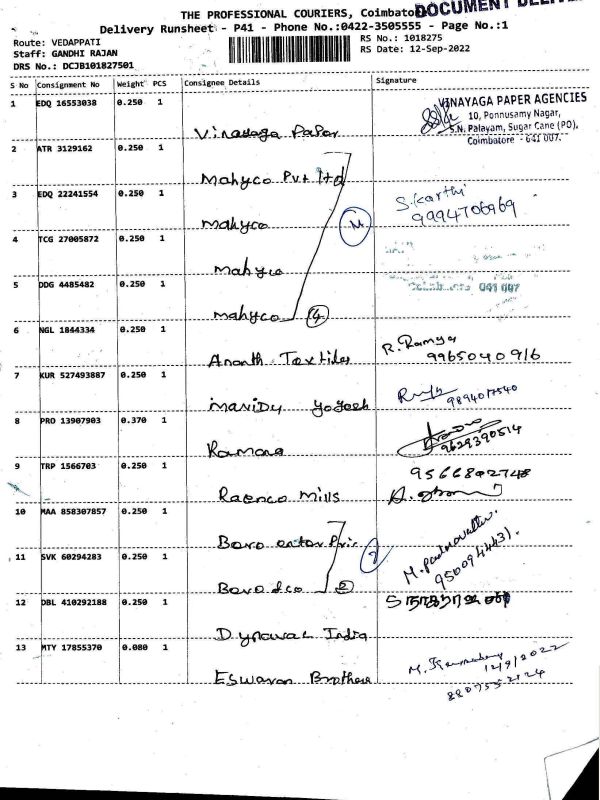 THE PROFESSIONAL COURIERS, Coimbato
DOCUMENT DELIVE
Delivery Runsheet - P41 - Phone No.:0422-3505555 - Page No.:1
Route: VEDAPPATI
RS No.: 1018275
Staff: GANDHI RAJAN
RS Date: 12-Sep-2022
DRS No.: DCJB101827501
S No Consignment No Weight PCS Consignee Details Signature
1 EDQ 16553038 0.250 1
VINAYAGA PAPER AGENCIES
10, Ponnusamy Nagar,
S.N. Palayam, Sugar Cane (PO),
Coimbatore - 641 007.
Vinayaga Paper
2 ATR 3129162 0.250 1
Mahyco Pvt ltd
3 EDQ 22241554 0.250 1
S.Karthi
9994706969
Mahyco
M
4 TCG 27005872 0.250 1
Mahyco
5 DDG 4485482 0.250 1
Coimbatore 641 007
Mahyco 4
6 NGL 1844334 0.250 1
R. Ramya
9965040916
Ananth Textiles
7 KUR 527493887 0.250 1
9894017540
Yogesh
8 PRO 13907903 0.370 1
9629390514
Ramana
9 TRP 1566703 0.250 1
9566802748
Mills
10 MAA 858307857 0.250 1
11 SVK 60294283 0.250 1
M. Padmavathi.
9500944431.
2
12 DBL 410292188 0.250 1
India
13 MTY 17855370 0.080 1
12/9/2022
8807552124
Eswaran Brothers